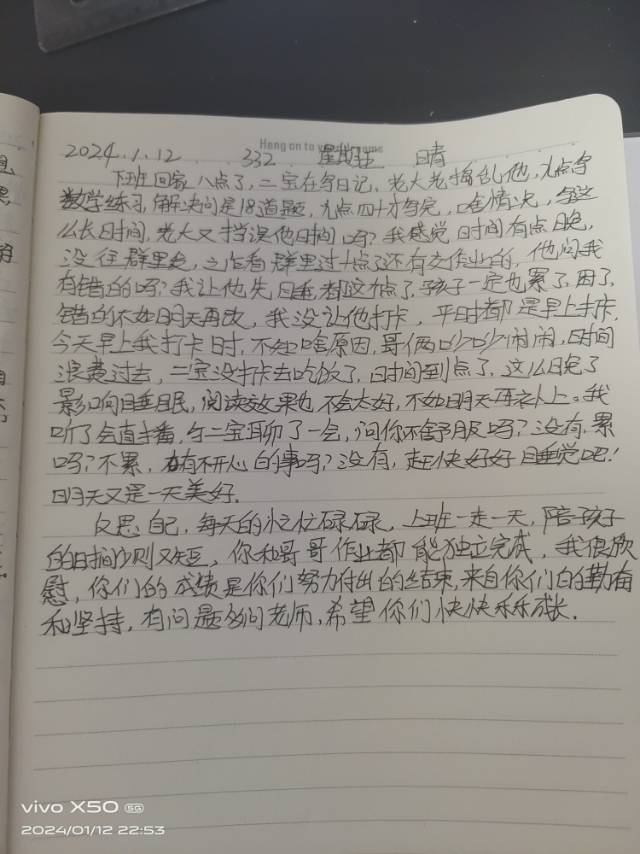 Hang on to your name
2024.1.12 332 星期五 晴
下班回家八点了，二宝在写日记，老大老捣乱他，九点写
数学练习，解决问是18道题，九点四十才写完，啥情况，写这
么长时间，老大又耽误他时间吗？我感觉时间有点晚，
没往群里发，之后看群里过十点了还有交作业的，他问我
有错的吗？我让他先睡，都这个点了，孩子一定也累了，困了，
错的不如明天再改，我没让他打卡，平时都是早上打卡，
今天早上我打卡时，不知啥原因，哥俩吵吵闹闹，时间
浪费过去，二宝没打卡去吃饭了，时间到点了，这么晚了
影响睡眠，阅读效果也不会太好，不如明天再补上。我
听了会直播，与二宝聊了一会，问你不舒服吗？没有，累
吗？不累，有不开心的事吗？没有，赶快好好睡觉吧！
明天又是一天美好.
反思自己，每天的忙忙碌碌，上班一走一天，陪孩子
的时间少则又短，你和哥哥作业都能独立完成，我很欣
慰，你们的成绩是你们努力付出的结束，来自你们的勤奋
和坚持，有问题多问老师，希望你们快快乐乐成长.
vivo X50 5G
2024/01/12 22:53